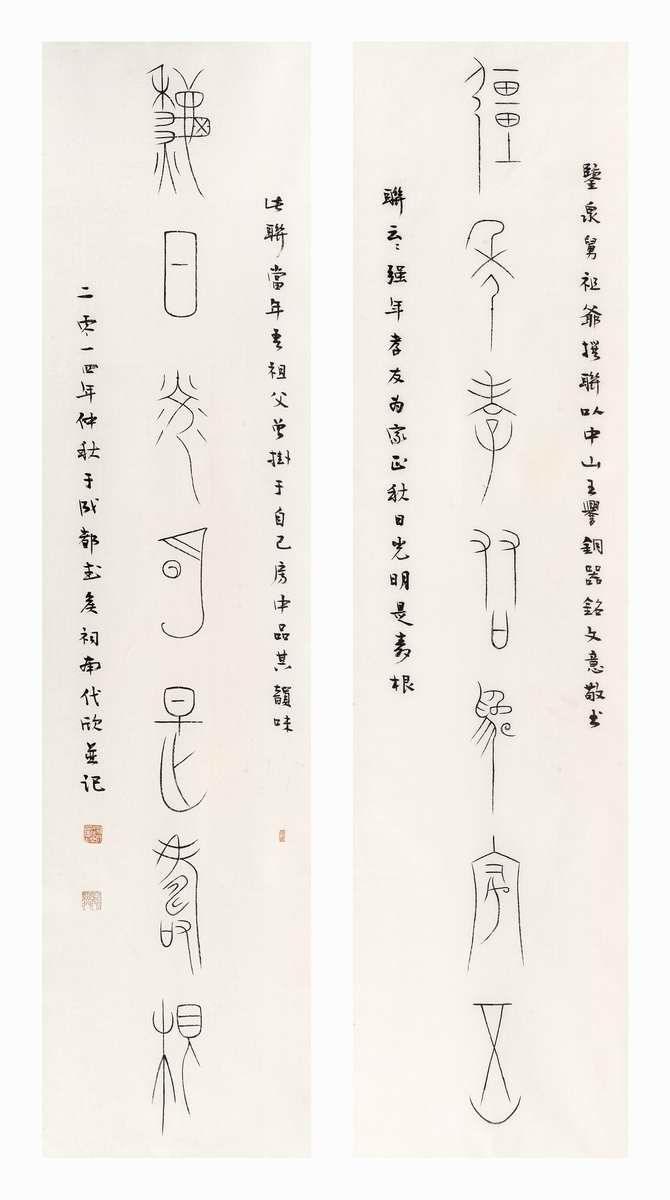 鑒泉舅祖爺撰聯以中山王譽銅器銘文意敬書
彊年孝友為家正
聯云〻强年孝友为家正秋日光明是壽根
此聯當年吾祖父曾掛于自己房中品其韻味
秋日光明是壽根
二零一四年仲秋于成都武侯祠南代欣並記